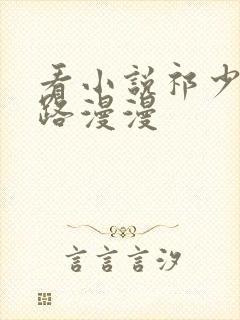 看小说祁少
路漫漫
言言言汐